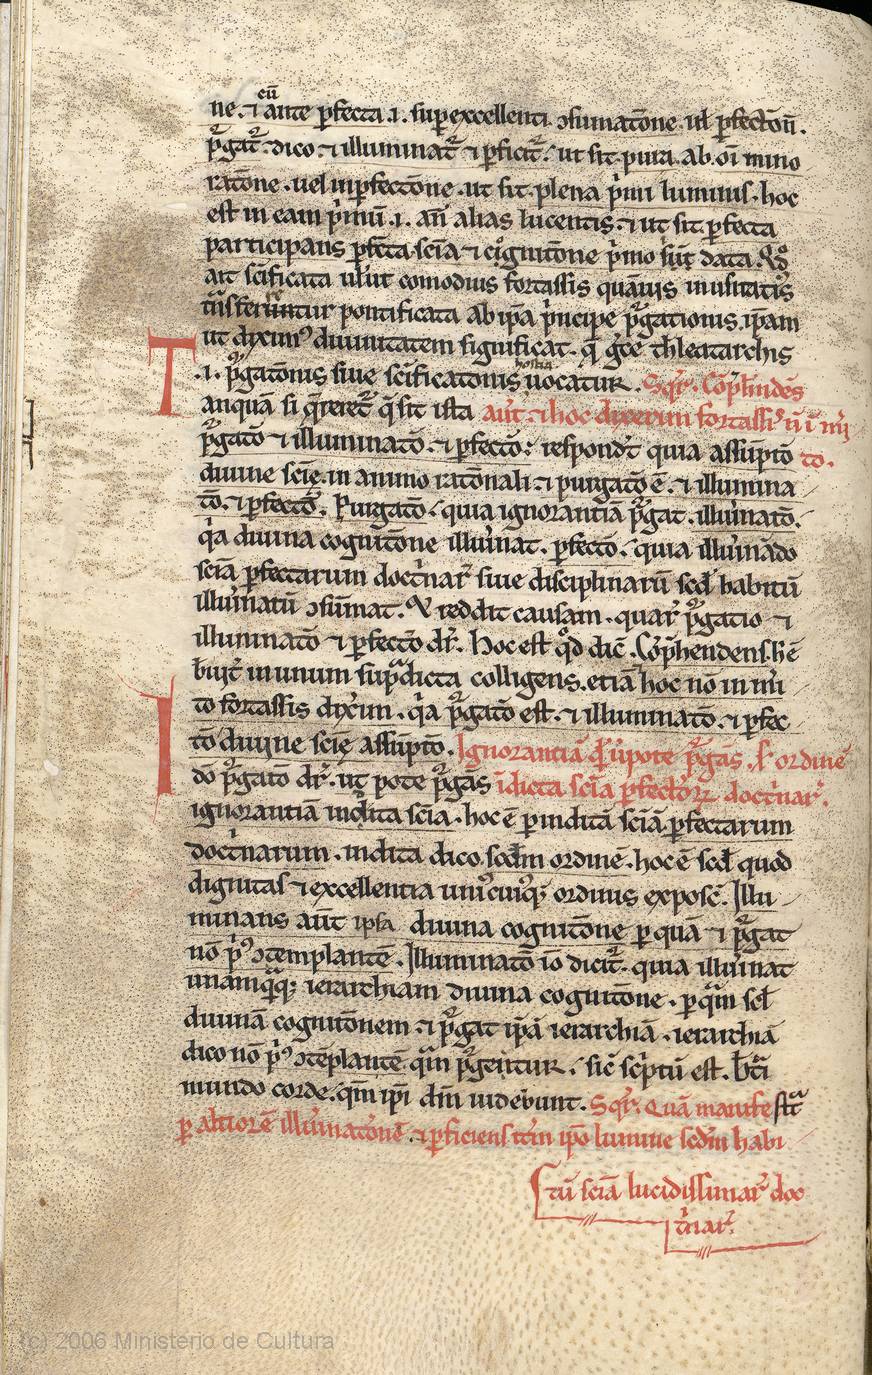 eū
ne. ⁊ ante ꝑfecta .i. suꝑexcellenti ɔsūmatōne. ul ꝑfectōn̄.
pͥgat᷑. dico. ⁊ illuminat᷑ ⁊ ꝑficit᷑. ut sit. pura. ab. oī mino
ratōne. uel inꝑfectōne. ut sit. plena pͥmi luminis. hoc
est in eam pͥmū .i. an̄ alias lucentis. ⁊ ut sit. ꝑfecta
participans ꝑfc̄ta. scīa ⁊ cōgnitōne pͥmo
ait scīficata comodius fortassis quāuis inusitatis
pontificata ab ip̄a pͥncipe pͥgationis. ip̄am
ut dixim᷒ diuinitatem significat. thleatarchis
hostia
.i. pͥgatōnis siue scīficatōnis uocatur. Sqr̄. Cōp̄hndēs
Tanquā si q̄reret᷑ q̄ sit ista aut. ⁊ hoc dixerim fortassis n̄ īmī
pͥgatō ⁊ illuminatō. ⁊ ꝑfectō: respond᷑ quia assūptō to.
diuine scīę. in animo ratōnali. ⁊ purgatō ē. ⁊ illumina
tō. ⁊ ꝑfectō. Purgatō. quia ignorantiā pͥgat. illūinatō.
qͥa diuina cognitōne illūinat. ꝑfectō. quia illūinādo
scīā ꝑfectarum doctͥnar᷑ siue disciplinarū scd̄ habitū
illūinatū ɔsūmat. Ꝟ reddit causam. quar᷑ pͥgatio ⁊
illuminatō ⁊ ꝑfectō dr̄. Hoc est qd̄ dic̄. Cōp̄hendens. h̄ē
b̄uit᷑ in unum sup̄dicta colligens. etiā hoc nō inmī
to fortassis dixīm. qͥa pͥgatō est. ⁊ illuminatō. ⁊ ꝑfec
tō diuine scīę assūptō. Ignorantiā q̄dē utpote pͥgās. s. ordinē
Idō pͥgatō dr̄. ut pote pͥgās īdicta scīa ꝑfectioꝝ doctͥnar᷑.
ignorantiā indita scīa. hoc ē ꝑ inditā scīā ꝑfectarum
doctͥnarum. indita dico. scd̄m ordinē. hoc ē scd̄ quod
dignitas ⁊ excellentia uni᷒cuiꝰqꝫ ordinis exposc̄. Illu
minans aut̄ ipsa diuina cognitōne ꝑ quā ⁊ pͥgat
nō pͥ᷒ ɔtemplantē. Illuminatō iō dicit᷑. quia illūinat
unamqͣqꝫ ierarchiam diuina cognitōne. ꝑ qͣm scl̄
diuinā cognitōnem ⁊ pͥgat ip̄ā ierarchiā. ierarchiā
dico nō pͥ᷒ ɔtēplantē. qͣm pͥgentur. sic̄ scͥptū est. B̄ti
mundo corde. qm̄ ip̄i dm̄ uidebunt. Sqr̄. Quā manifestat̄
ꝑ altiorē illūinatōnē. ⁊ ꝑficiens itm̄ ip̄o lumine scd̄m habi
tū scīā lucidissimar᷑ doc
tͥnar᷑.
(c) 2006 Ministerio de Cultura